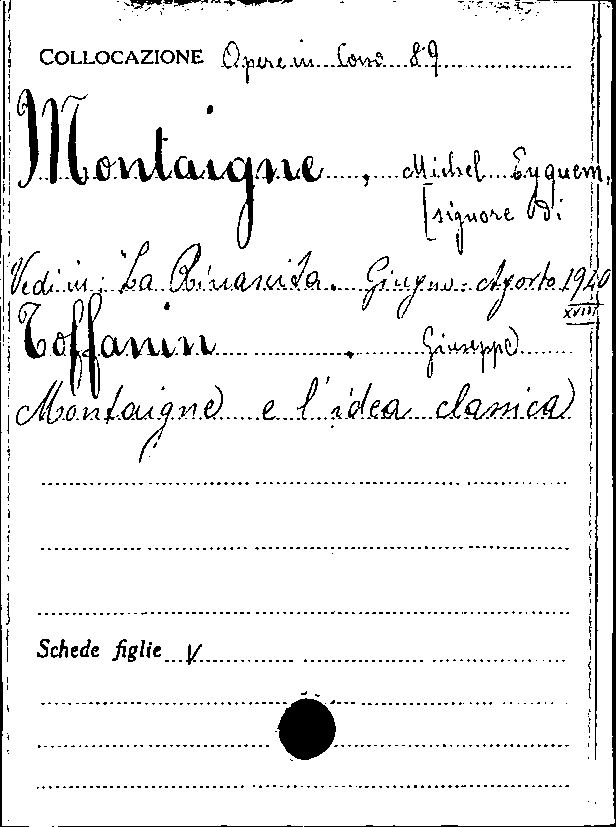 COLLOCAZIONE Opere in Cons 89
Montaigne, Michel Eyquem,
[signore di
Vedi in: La Rinascita. Giugno-Agosto 1940
XVIII
Toffanin, Giuseppe
Montaigne e l'idea classica
Schede figlie V